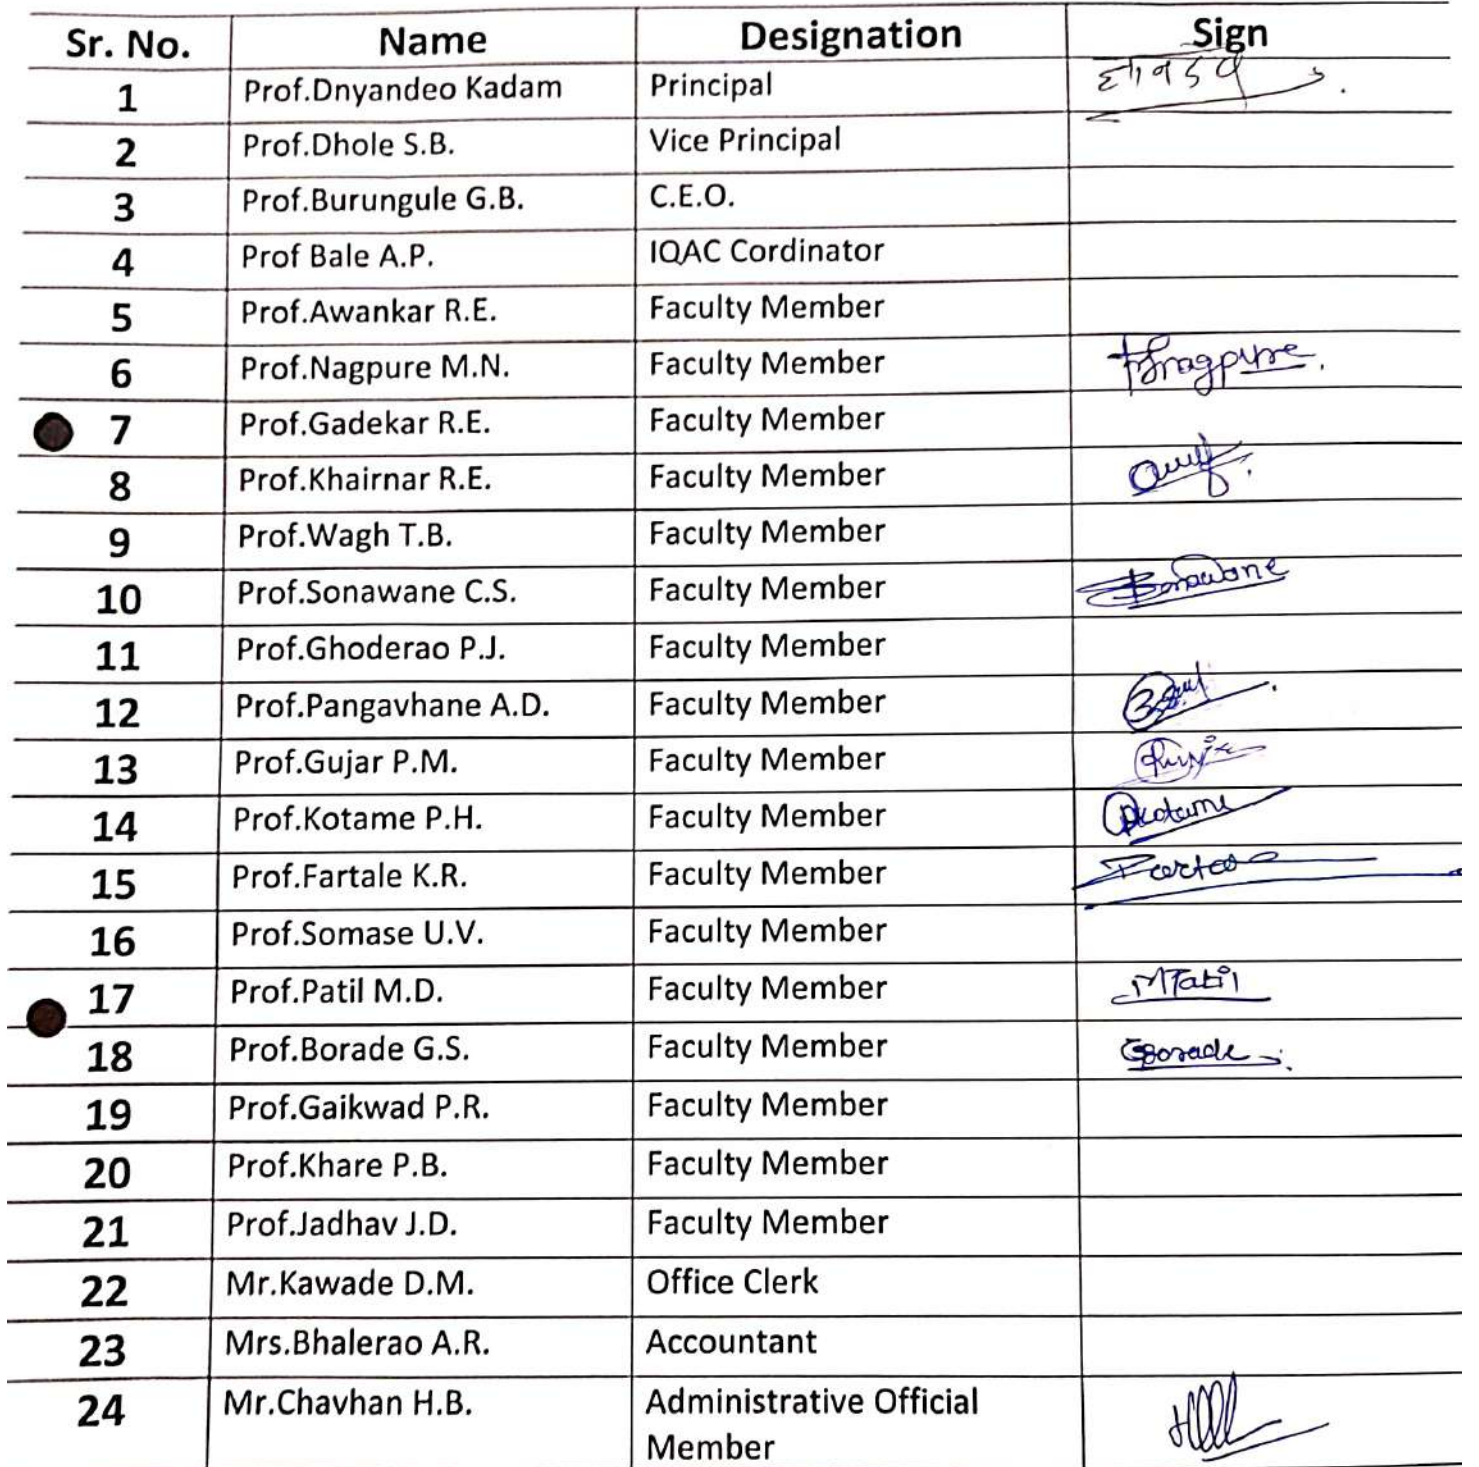 Sr. No. Name Designation Sign
1 Prof.Dnyandeo Kadam Principal
2 Prof.Dhole S.B. Vice Principal
3 Prof.Burungule G.B. C.E.O.
4 Prof Bale A.P. IQAC Cordinator
5 Prof.Awankar R.E. Faculty Member
6 Prof.Nagpure M.N. Faculty Member
7 Prof.Gadekar R.E. Faculty Member
8 Prof.Khairnar R.E. Faculty Member
9 Prof.Wagh T.B. Faculty Member
10 Prof.Sonawane C.S. Faculty Member Sonawane
11 Prof.Ghoderao P.J. Faculty Member
12 Prof.Pangavhane A.D. Faculty Member
13 Prof.Gujar P.M. Faculty Member
14 Prof.Kotame P.H. Faculty Member PKotame
15 Prof.Fartale K.R. Faculty Member
16 Prof.Somase U.V. Faculty Member
17 Prof.Patil M.D. Faculty Member MPatil
18 Prof.Borade G.S. Faculty Member GBorade
19 Prof.Gaikwad P.R. Faculty Member
20 Prof.Khare P.B. Faculty Member
21 Prof.Jadhav J.D. Faculty Member
22 Mr.Kawade D.M. Office Clerk
23 Mrs.Bhalerao A.R. Accountant
24 Mr.Chavhan H.B. Administrative Official
Member